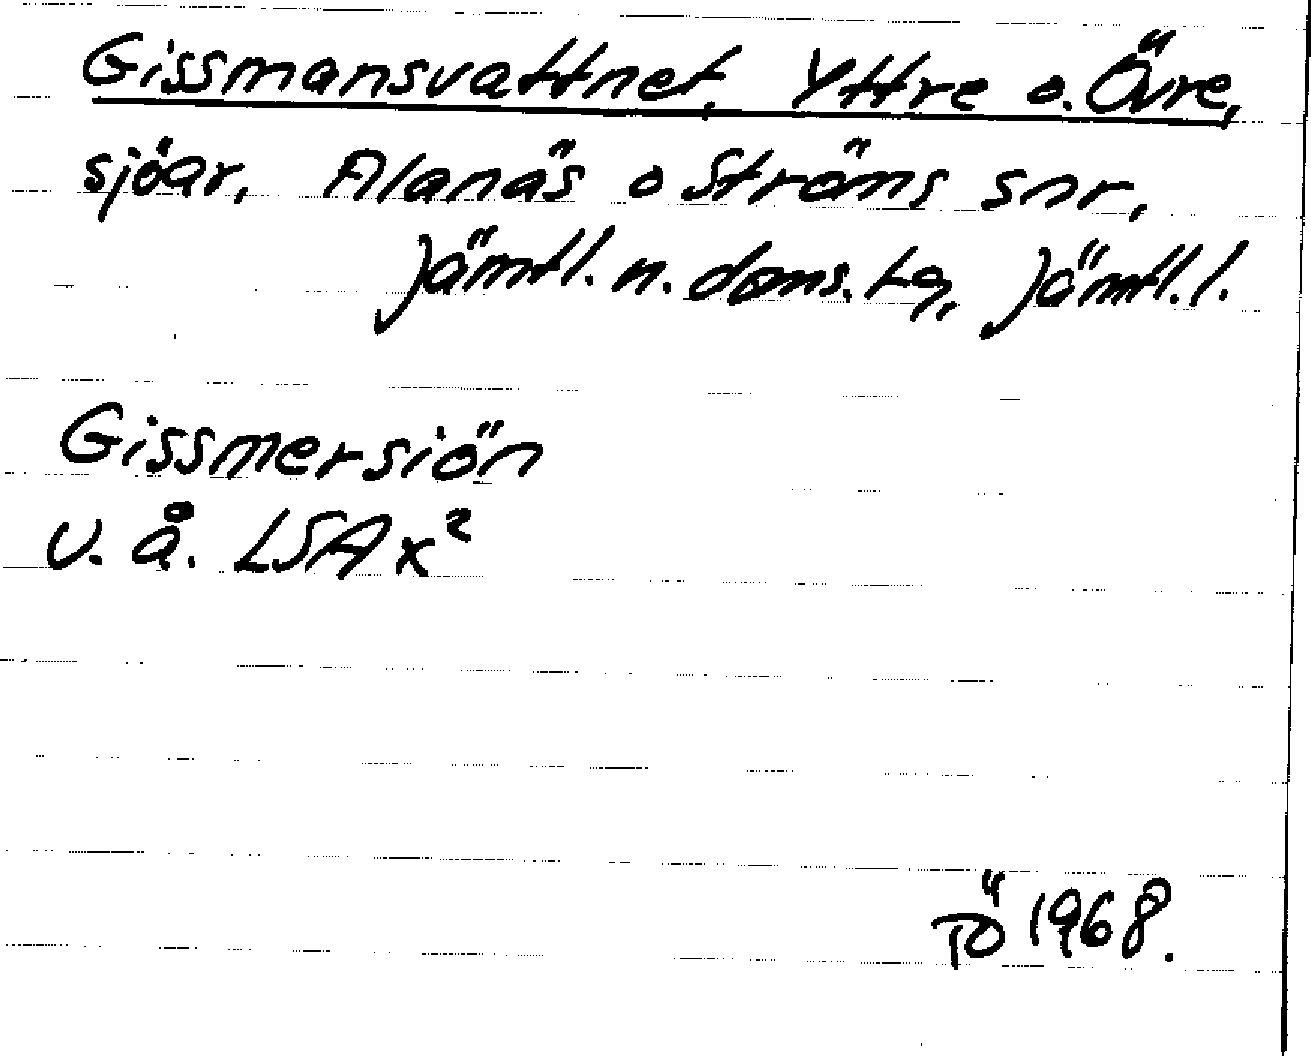 Gissmansvattnet, Yttre o. Övre,
sjöar, Alanäs o Ströms snr,
Jämtl. n. doms. tg, Jämtl. l.
Gissmersiön
U. å. LSA x²
TÖ 1968.